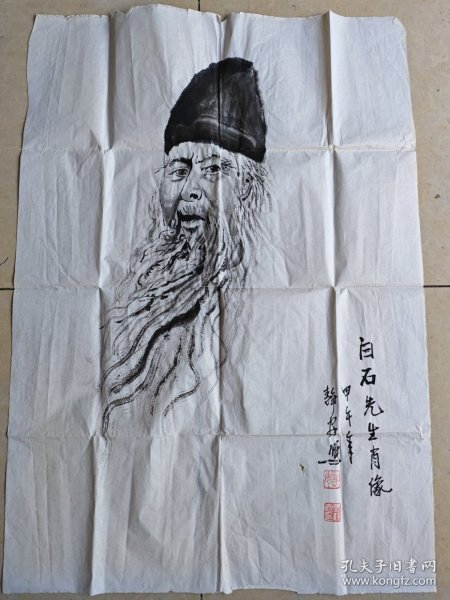 白石先生肖像
甲午年
孔夫子旧书网
www.kongfz.com